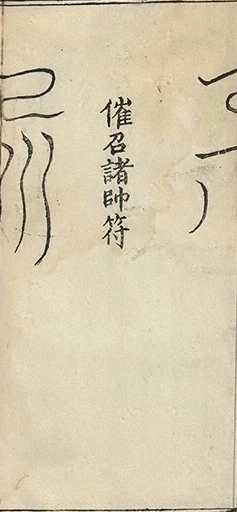 催召諸帥符